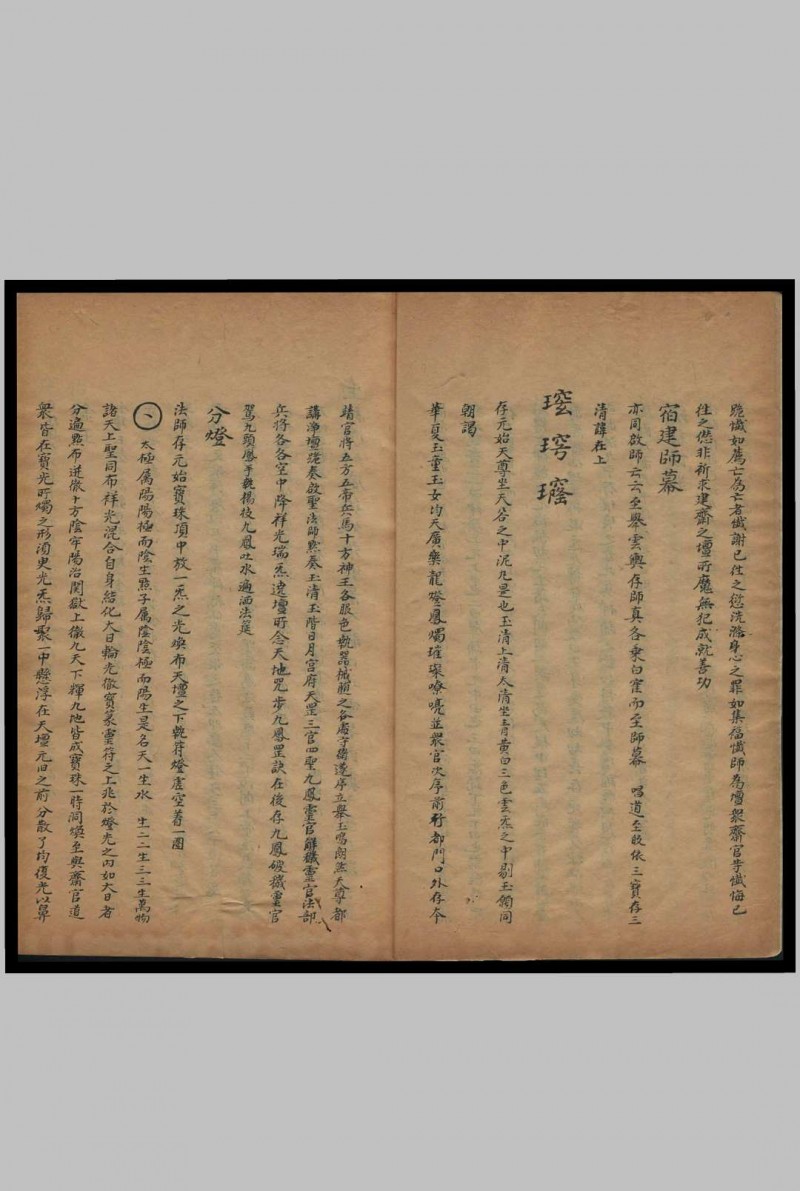 跪懺如薦亡為亡者懺謝已往之愆洗滌身心之罪如集福懺師為壇眾齋官等懺悔已
往之愆非祈求建齋之壇所魔無犯成就善功
宿建師幕
亦同啟師云云至舉雲輿存師真各乘白雀而至師幕 唱道至皈依三寶存三
清諱在上
存元始天尊坐天谷之中泥九是也玉清上清太清坐青黃白三色雲炁之中剔玉觸同
朝謁
華夏玉童玉女均天廣樂龍燈鳳燭璀璨嘹喨並眾官次序前行都門口外存本
靖官將五方五帝兵馬十方神王各服色執器械照之各處守衛遶序立舉玉鳴朗然天尊都
講淨壇遶奏啟聖法師默奏上清玉階日月宮府天罡三官四聖九鳳靈官解穢靈官法部
兵將各各空中降祥光瑞炁遶壇所念天地咒步九鳳罡訣在後存九鳳破穢靈官
駕九頭鳳手執楊枝九鳳吐水遍洒法筵
分燈
法師存元始寶珠頂中放一炁之光煥布天壇之下執符燈虛空着一圈
太極属陽陽極而陰生點子属陰陰極而陽生是名天一生水 生二二生三三生萬物
諸天上聖同布祥光混合自身結化大日輪光徹寶篆靈符之上兆於燈光之內如大日者
分遍點布逆徹十方陰牢陽治関獄上徹九天下輝九地皆成寶珠一時洞煥至與齋官道
眾皆在寶光所燭之形須臾光炁歸聚一中懸浮在天壇元旧之前分散了均復光以鼻